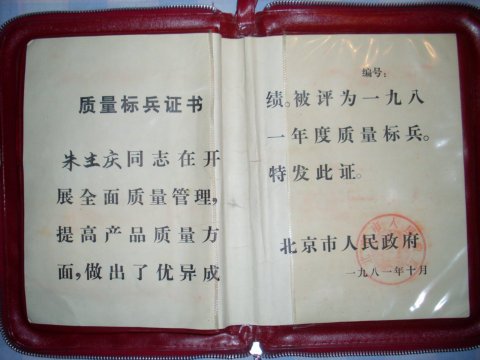 质量标兵证书
朱主庆同志在开
展全面质量管理,
提高产品质量方
面,做出了优异成
编号:
绩。被评为一九八
一年度质量标兵。
特发此证。
北京市人民政府
一九八一年十月